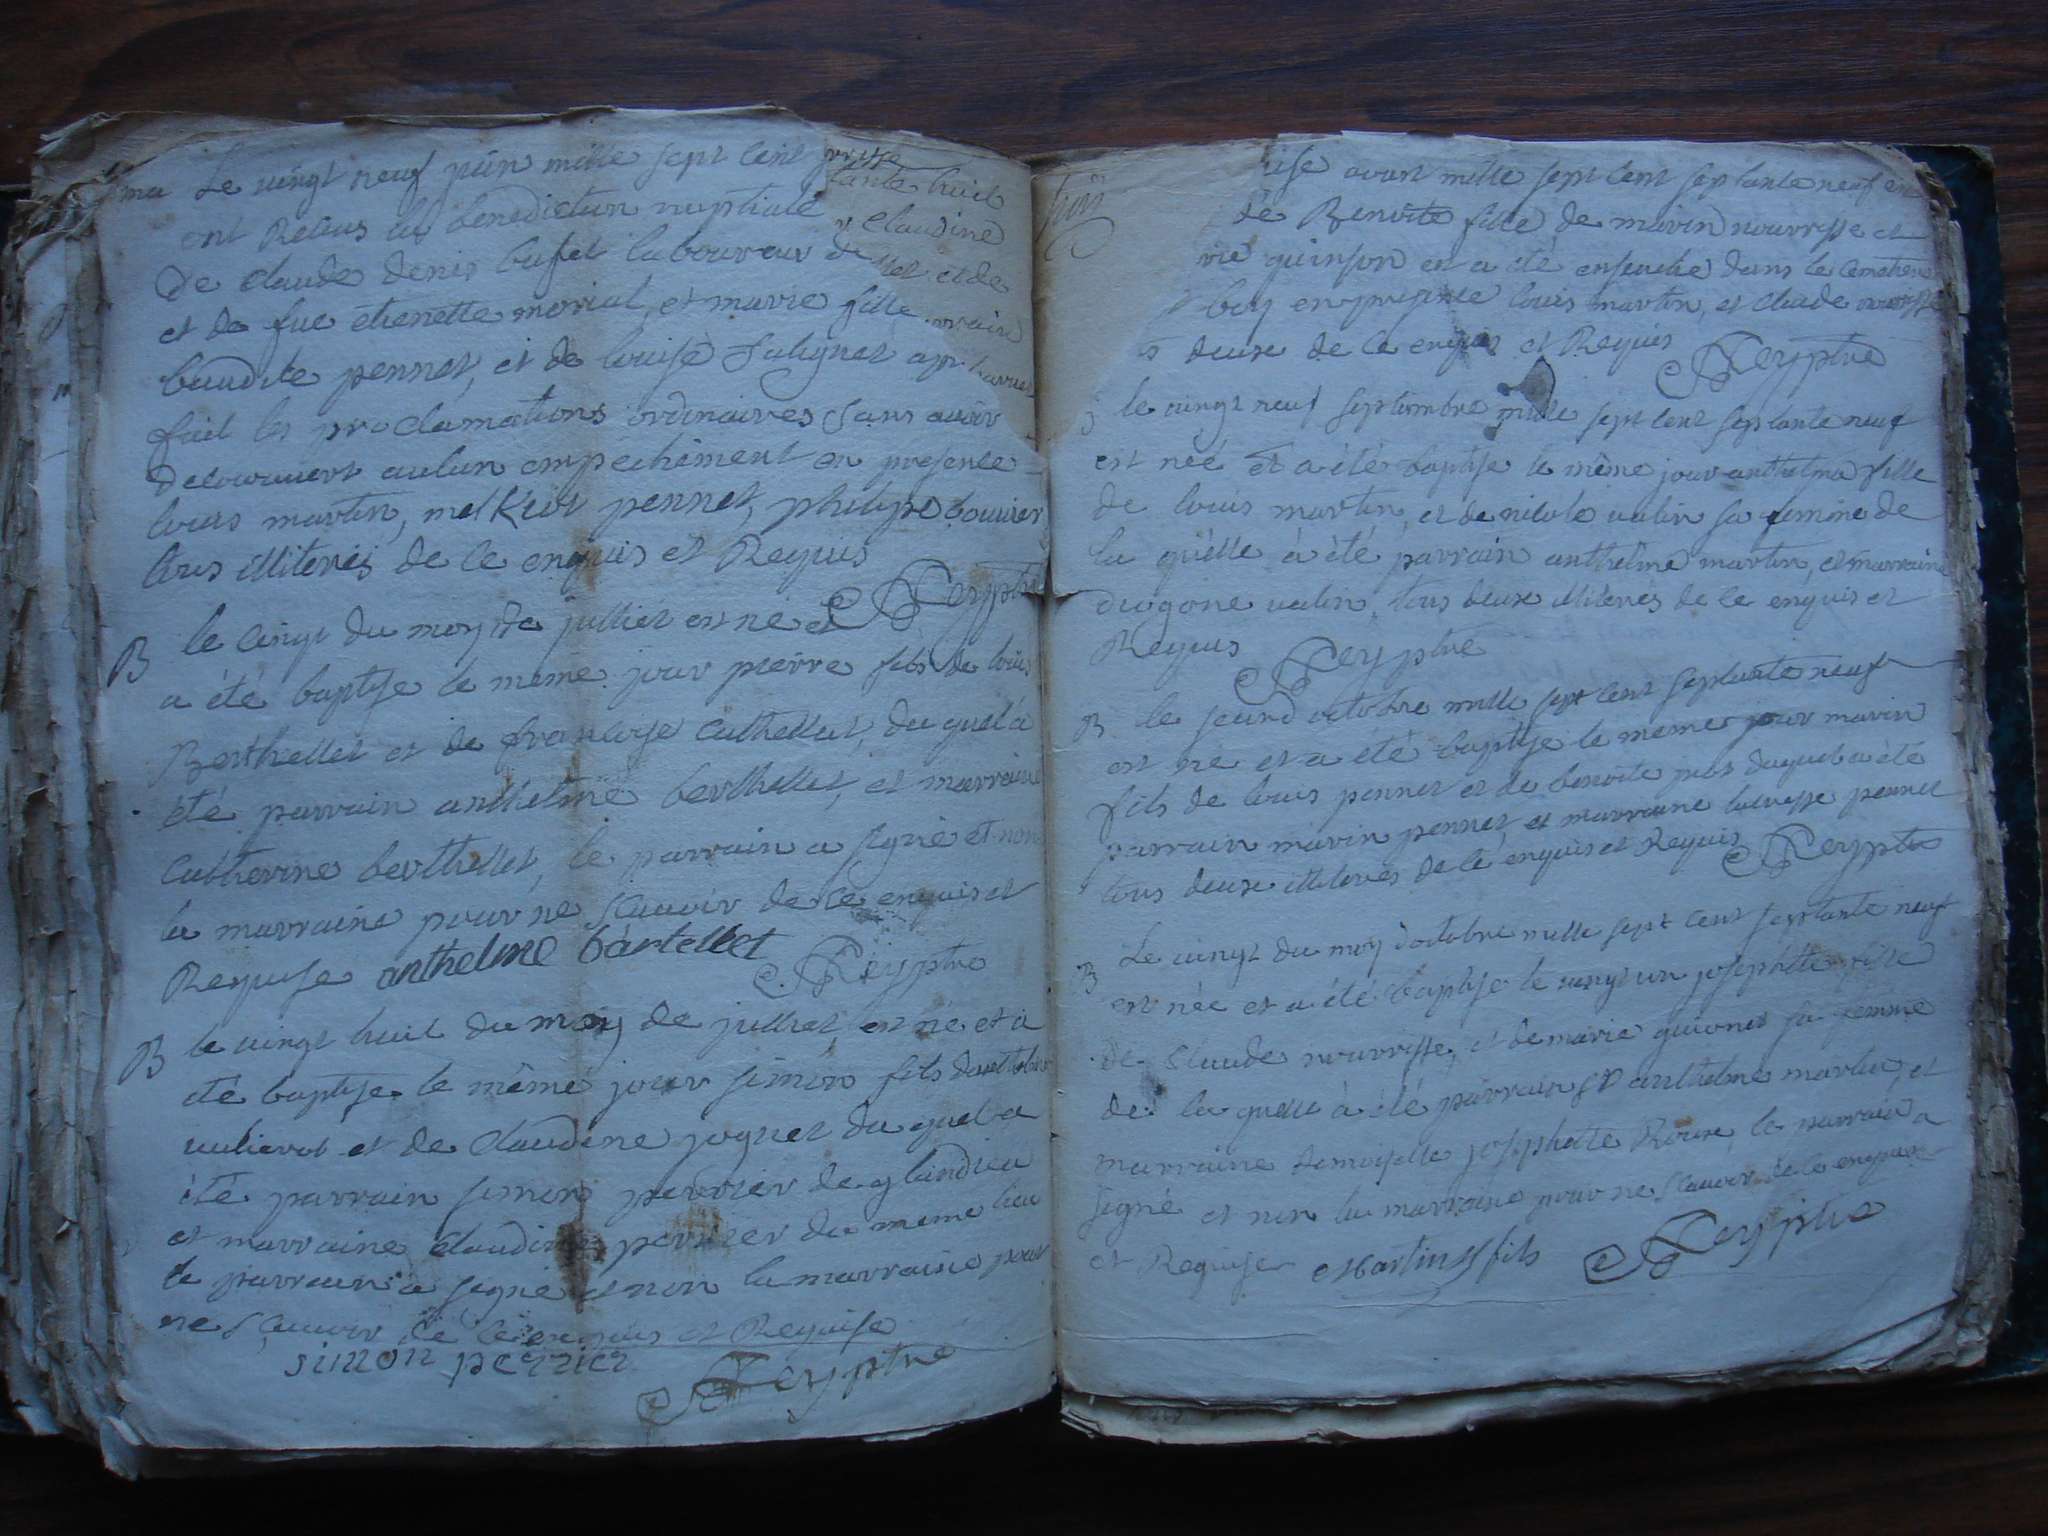 ma Le vingt neuf juin mille sept cent
ont Recus la benediction nuptiale
De claude denis bufet laboureur de
et de fue etienette morial, et marie fille
baudite pennet, et de louise Salignet apr
fait les proclamations ordinaires sans avoir
decouuert auCun empechement en presence
louis martin, melKiot pennet, philipe bouvier
tous illiterés de ce enquis et Requis
Reyptre
tante huit
claudine
et de
B le vingt du moy de julliet est né et
a été baptise le même jour pierre fils de louis
Berthellet et de francoise Cathellat, du quel a
été parrain anthelme berthellet, et marraine
Catherine berthellet, le parrain a signé et non
la marraine pour ne scavoir de ce enquis et
Requise anthelme bartellet Reyptre
B le vingt huit du moy de julliet est né et a
été baptise le même jour simon fils danthelme
et de claudine jognet du quel a
été parrain simon perrier de glandieu
et marraine claudine perrier du meme lieu
le parrain a signé et non la marraine pour
ne scavoir de ce enquis et Requise
simon perrier Reyptre
avant mille sept cent septante neuf
de Benoite fille de marin nourrisse et
quinson et a été ensevelie dans le cemetiere
en presence louis martin, et claude nourrisse
deux de ce enquis et Requis Reyptre
le vingt neuf septembre mille sept cent septante neuf
est née et a été baptise le même jour anthelma fille
de louis martin, et de nicole valin sa femme de
la quelle à été parrain anthelme martin, et marraine
valin, tous deux illiterés de ce enquis et
Requis Reyptre
B le second octobre mille sept cent septante neuf
est né et a été baptise le meme jour marin
fils de louis pennet et de benoite duquel a été
parrain marin pennet, et marraine pennet
tous deux illiterés de ce enquis et Requis Reyptre
B Le vingt du moy d'octobre mille sept cent septante neuf
est née et a été baptise le vingt un josephette fille
de Claude nourrisse, et de marie guionet sa femme
de la quelle à été parrain sr anthelme martin, et
marraine demoiselle josephette Roux le parrain a
signé et non la marraine pour ne scavoir de ce enquise
et Requise Martin fils Reyptre